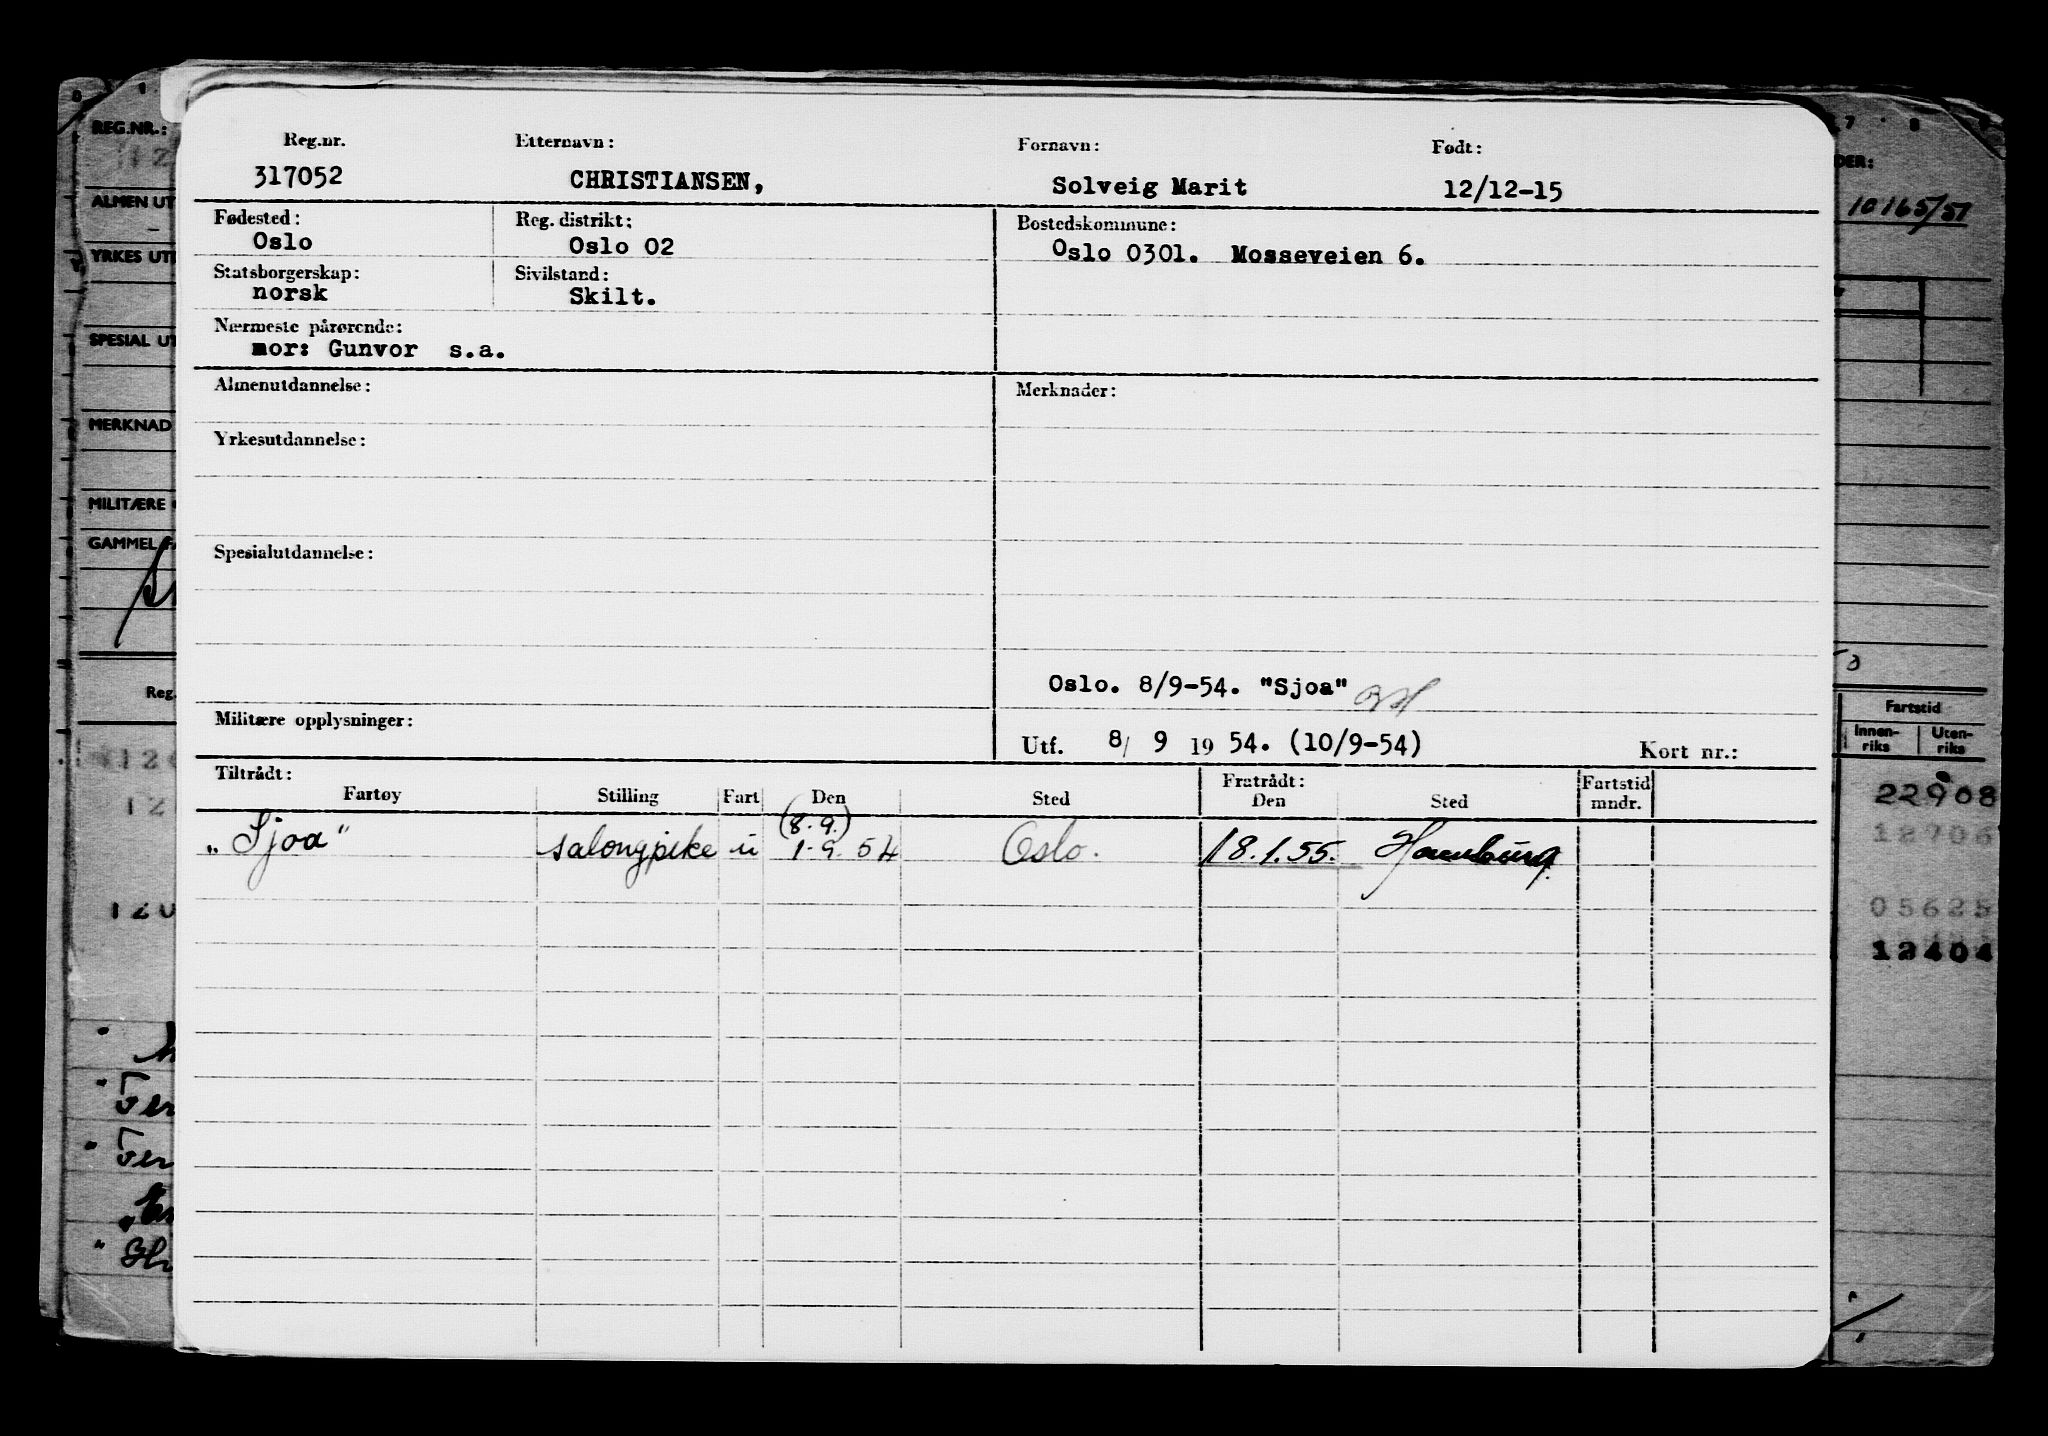 Reg.nr. Etternavn: Fornavn: Født:
317052 CHRISTIANSEN, Solveig Marit 12/12-15
Fødested: Reg. distrikt: Bostedskommune:
Oslo Oslo 02 Oslo 0301. Mosseveien 6.
Statsborgerskap: Sivilstand:
norsk Skilt.
Nærmeste pårørende:
mor: Gunvor s.a.
Almenutdannelse: Merknader:
Yrkesutdannelse:
Spesialutdannelse:
Oslo. 8/9-54. "Sjoa"
Militære opplysninger:
Utf. 8/ 9 19 54. (10/9-54) Kort nr.:
Tiltrådt: Fratrådt: Fartstid
Fartøy Stilling Fart Den Sted Den Sted mndr.
(8.9.)
„Sjoa" salongpike u 1.9.54 Oslo. 18.1.55. Hamburg.
REG.NR.:
12
ALMEN UT
YRKES UT
SPESIAL UT
MERKNAD
MILITÆRE
GAMMEL
Reg.
120
12
120
" Fer
" Fer
7 8
DER:
10165/51
Fartstid
Innen-
riks
Uten-
riks
22908
12706
05625
12404